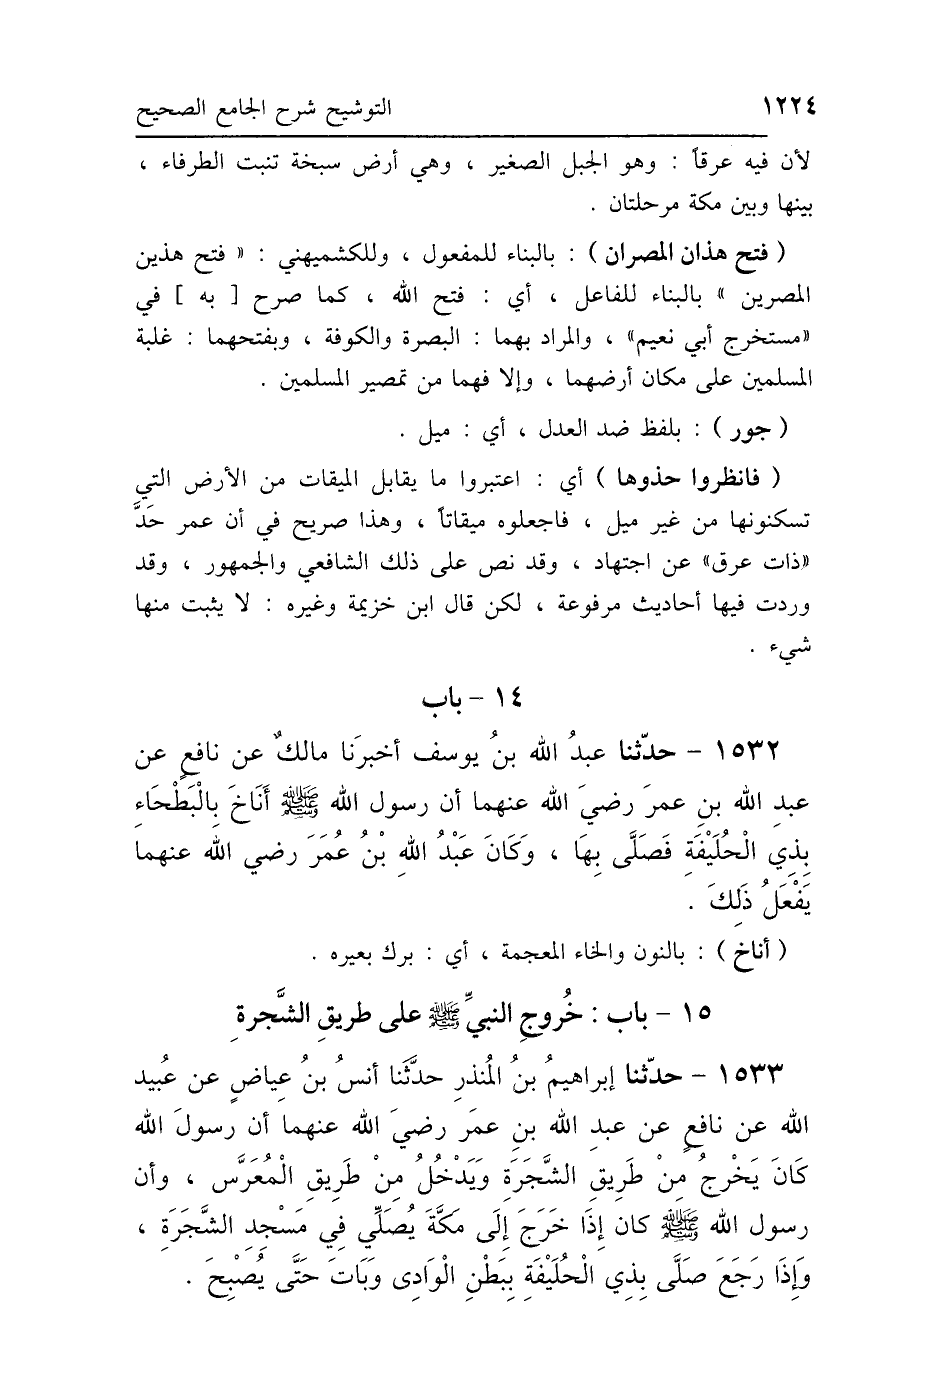 ١٢٢٤ التوشيح شرح الجامع الصحيح
لأن فيه عرقاً : وهو الجبل الصغير ، وهي أرض سبخة تنبت الطرفاء ،
بينها وبين مكة مرحلتان .
( فتح هذان المصران ) : بالبناء للمفعول ، وللكشميهني : « فتح هذين
المصرين » بالبناء للفاعل ، أي : فتح الله ، كما صرح [ به ] في
«مستخرج أبي نعيم» ، والمراد بهما : البصرة والكوفة ، وبفتحهما : غلبة
المسلمين على مكان أرضهما ، وإلا فهما من تمصير المسلمين .
( جور ) : بلفظ ضد العدل ، أي : ميل .
( فانظروا حذوها ) أي : اعتبروا ما يقابل الميقات من الأرض التي
تسكنونها من غير ميل ، فاجعلوه ميقاتاً ، وهذا صريح في أن عمر حَدَّ
«ذات عرق» عن اجتهاد ، وقد نص على ذلك الشافعي والجمهور ، وقد
وردت فيها أحاديث مرفوعة ، لكن قال ابن خزيمة وغيره : لا يثبت منها
شيء .
١٤ - باب
١٥٣٢ - حدّثنا عبدُ الله بنُ يوسف أخبرَنا مالكٌ عن نافعٍ عن
عبدِ الله بنِ عمرَ رضيَ الله عنهما أن رسول الله ﷺ أَنَاخَ بِالْبَطْحَاءِ
بِذِي الْحُلَيْفَةِ فَصَلَّى بِهَا ، وَكَانَ عَبْدُ اللهِ بْنُ عُمَرَ رضي الله عنهما
يَفْعَلُ ذَلِكَ .
( أناخ ) : بالنون والخاء المعجمة ، أي : برك بعيره .
١٥ - باب : خُروجِ النبيِّ ﷺ على طريقِ الشَّجرةِ
١٥٣٣ - حدّثنا إبراهيمُ بنُ المُنذرِ حدَّثَنا أنسُ بنُ عياضٍ عن عُبيد
الله عن نافعٍ عن عبدِ الله بنِ عمَر رضيَ الله عنهما أن رسولَ الله
كَانَ يَخْرجُ مِنْ طَرِيقِ الشَّجَرَةِ وَيَدْخُلُ مِنْ طَرِيقِ الْمُعَرَّس ، وأن
رسول الله ﷺ كان إذَا خَرَجَ إلَى مَكَّةَ يُصَلِّي فِي مَسْجِدِ الشَّجَرَةِ ،
وَإِذَا رَجَعَ صَلَّى بِذِي الْحُلَيْفَةِ بِبَطْنِ الْوَادِى وَبَاتَ حَتَّى يُصْبِحَ .